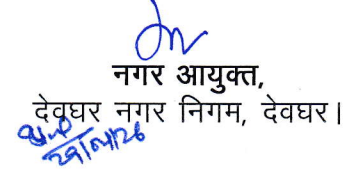 नगर आयुक्त,
देवघर नगर निगम, देवघर।